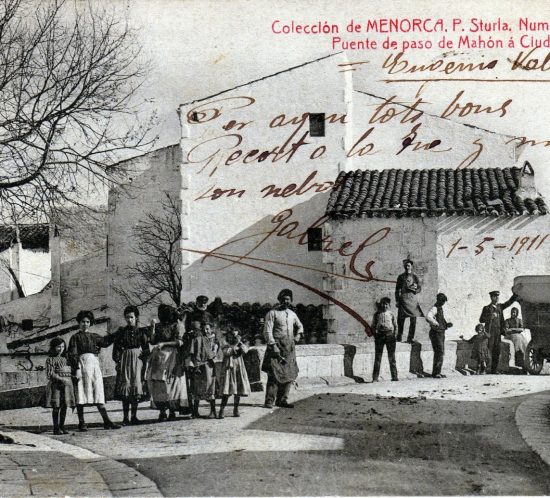 Colección de MENORCA. P. Sturla, Num
Puente de paso de Mahón á Ciud
Eugenio Val
Per ayun tots bons
Recort a la tua y mi
son nebot
Gabriel
1-5-1911